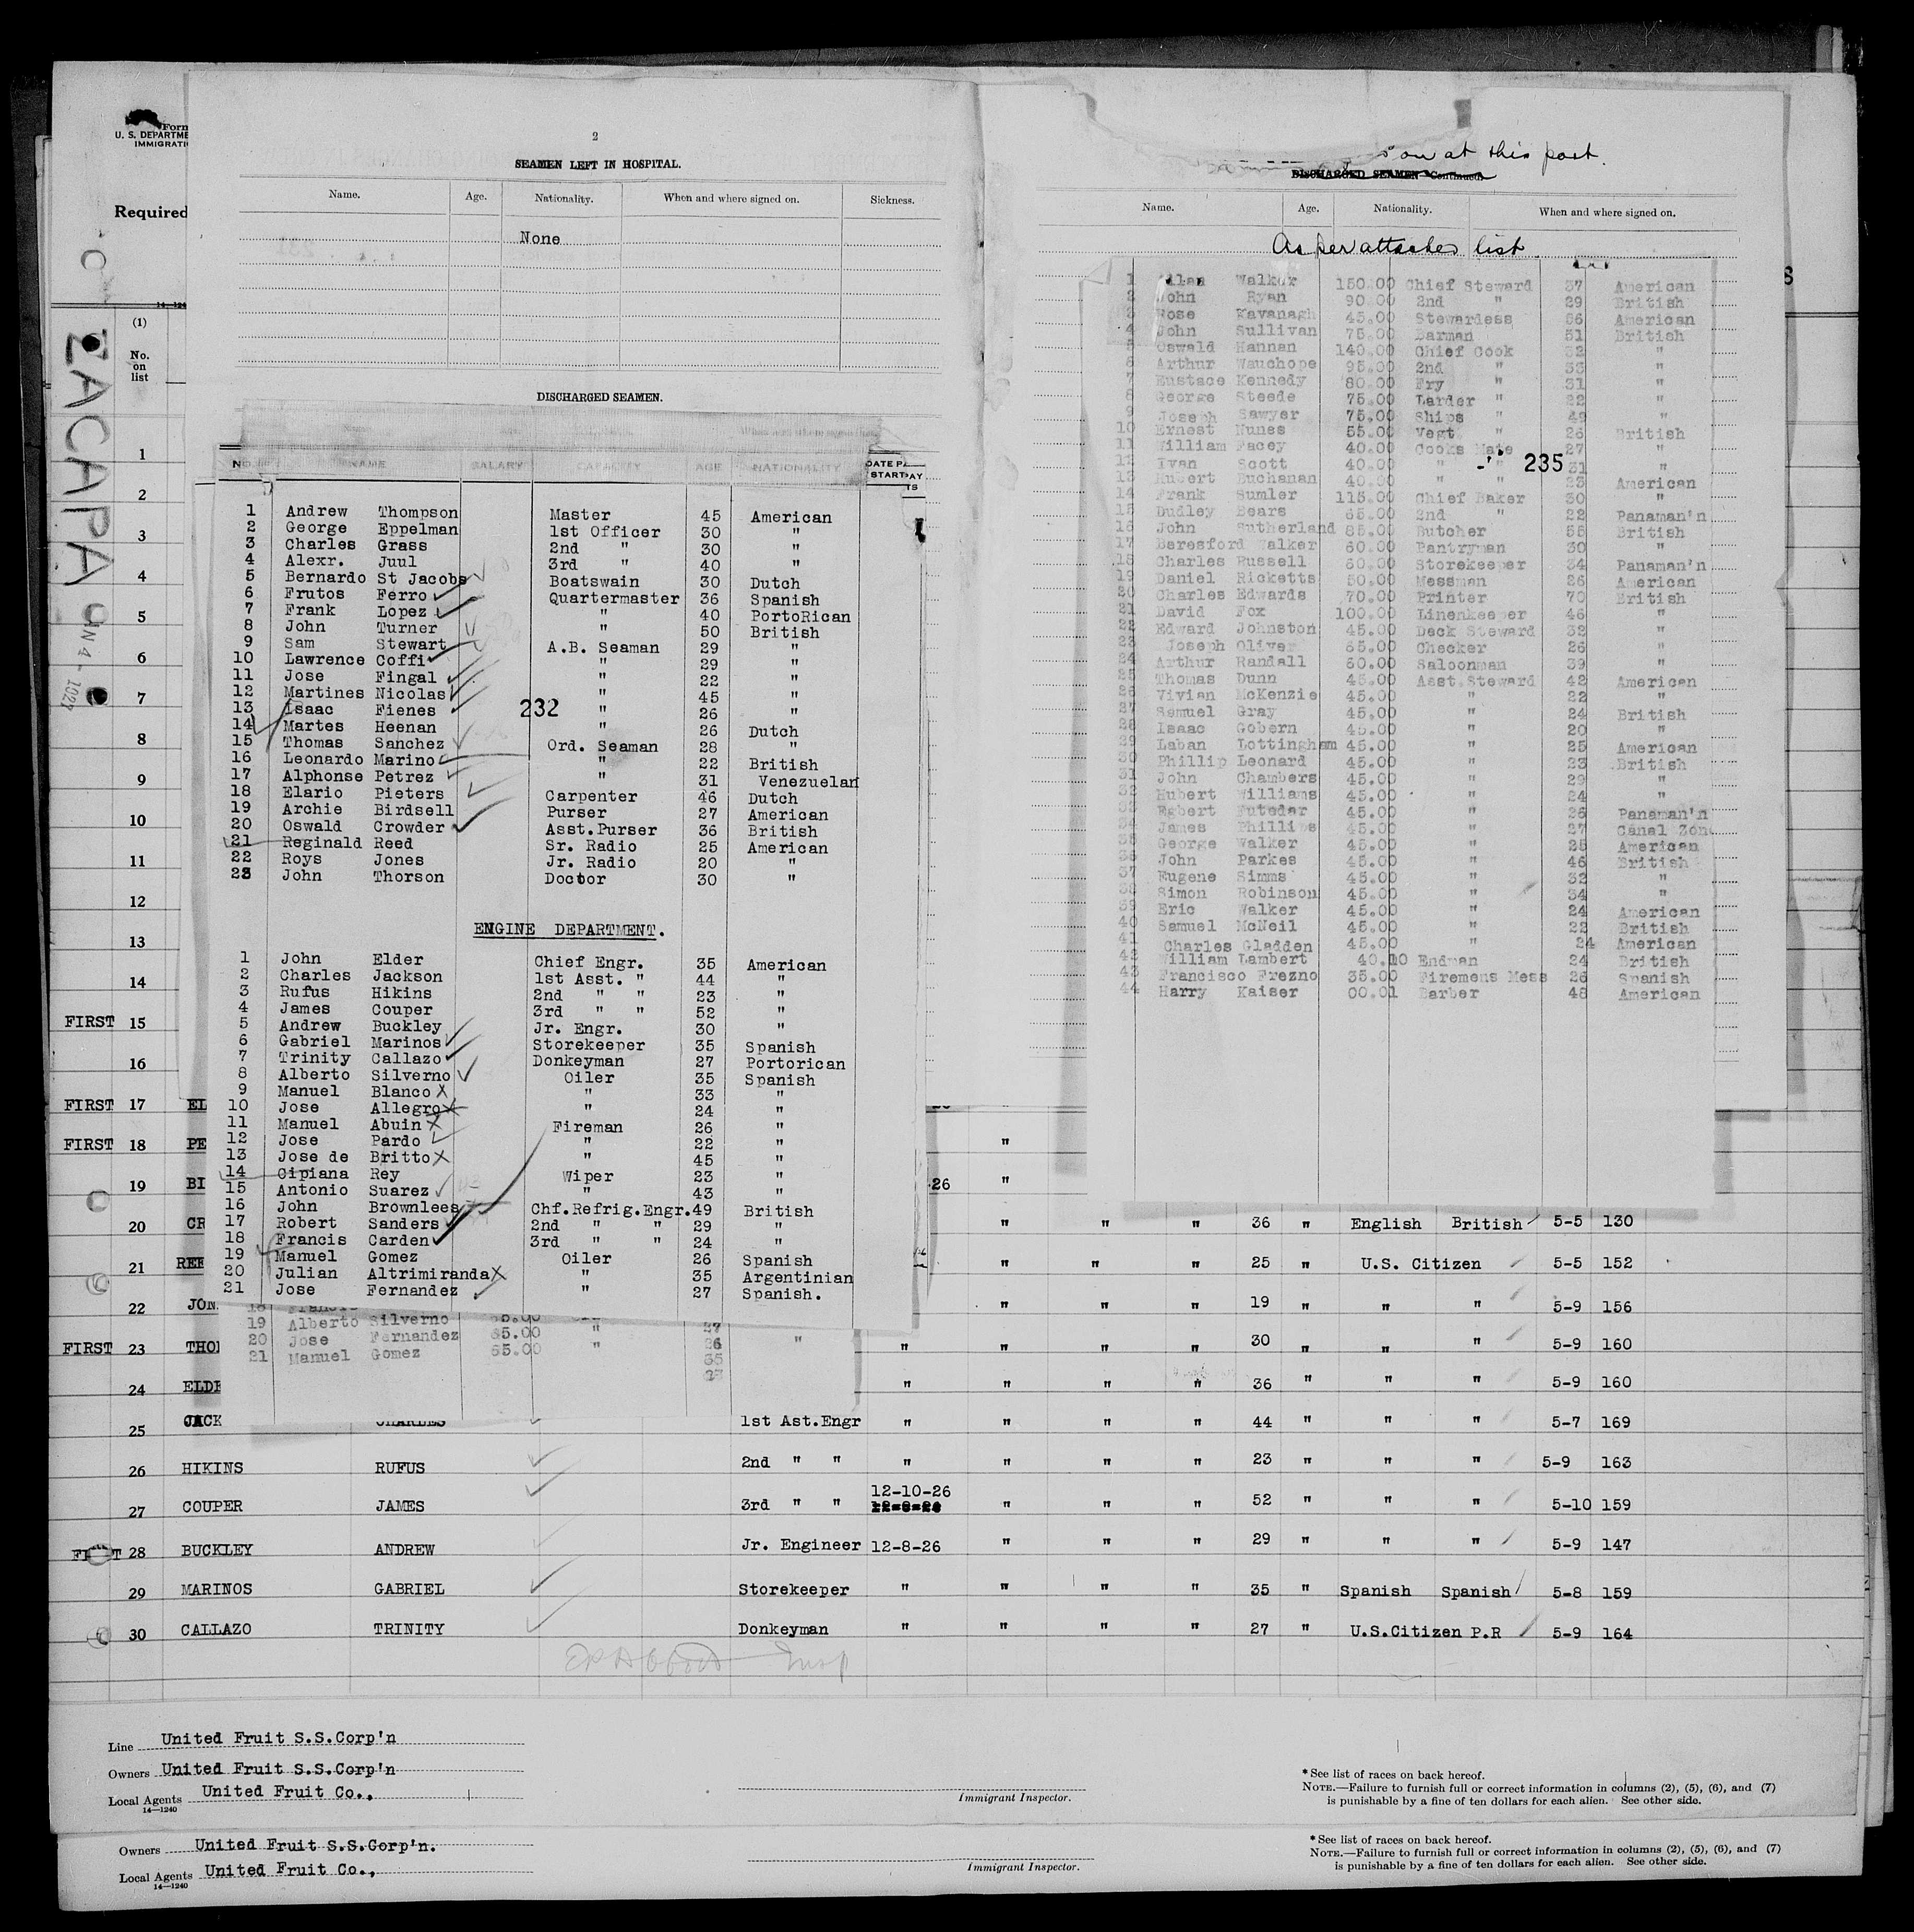 Form
U. S. DEPARTME
IMMIGRATI
Required
14-124
(1)
No.
on
list
ZACAPA
2
SEAMEN LEFT IN HOSPITAL.
Name. Age. Nationality. When and where signed on. Sickness.
None
DISCHARGED SEAMEN.
No. NAME SALARY CAPACITY AGE NATIONALITY DATE PAY STARTS
1 Andrew Thompson Master 45 American
2 George Eppelman 1st Officer 30 "
3 Charles Grass 2nd " 30 "
4 Alexr. Juul 3rd " 40 "
5 Bernardo St Jacobs Boatswain 30 Dutch
6 Frutos Ferro Quartermaster 36 Spanish
7 Frank Lopez " 40 PortoRican
8 John Turner " 50 British
9 Sam Stewart A.B. Seaman 29 "
10 Lawrence Coffi " 29 "
11 Jose Fingal " 22 "
12 Martines Nicolas " 45 "
13 Isaac Fienes " 26 "
232
14 Martes Heenan " 26 Dutch
15 Thomas Sanchez Ord. Seaman 28 "
16 Leonardo Marino " 22 British
17 Alphonse Petrez " 31 Venezuelan
18 Elario Pieters Carpenter 46 Dutch
19 Archie Birdsell Purser 27 American
20 Oswald Crowder Asst.Purser 36 British
21 Reginald Reed Sr. Radio 25 American
22 Roys Jones Jr. Radio 20 "
23 John Thorson Doctor 30 "
ENGINE DEPARTMENT.
1 John Elder Chief Engr. 35 American
2 Charles Jackson 1st Asst. " 44 "
3 Rufus Hikins 2nd " " 23 "
4 James Couper 3rd " " 52 "
5 Andrew Buckley Jr. Engr. 30 "
6 Gabriel Marinos Storekeeper 35 Spanish
7 Trinity Callazo Donkeyman 27 Portorican
8 Alberto Silverno Oiler 35 Spanish
9 Manuel Blanco " 33 "
10 Jose Allegro " 24 "
11 Manuel Abuin Fireman 26 "
12 Jose Pardo " 22 "
13 Jose de Britto " 45 "
14 Cipiana Rey Wiper 23 "
15 Antonio Suarez " 43 "
16 John Brownlees Chf.Refrig.Engr. 49 British
17 Robert Sanders 2nd " " 29 "
18 Francis Carden 3rd " " 24 "
19 Manuel Gomez Oiler 26 Spanish
20 Julian Altrimiranda " 35 Argentinian
21 Jose Fernandez " 27 Spanish.
19 Alberto Silverno
20 Jose Fernandez 65.00 "
21 Manuel Gomez 65.00 "
on at this port.
DISCHARGED SEAMEN—Continued.
Name. Age. Nationality. When and where signed on.
As per attached list
1 Allan Walker 150.00 Chief Steward 37 American
2 John Ryan 90.00 2nd " 29 British
3 Rose Kavanagh 45.00 Stewardess 56 American
4 John Sullivan 75.00 Barman 51 British
5 Oswald Hannan 140.00 Chief Cook 32 "
6 Arthur Wauchope 95.00 2nd " 33 "
7 Eustace Kennedy 80.00 Fry " 31 "
8 George Steede 75.00 Larder " 22 "
9 Joseph Sawyer 75.00 Ships " 49 "
10 Ernest Nunes 55.00 Vegt " 26 British
11 William Facey 40.00 Cooks Mate 27 "
12 Ivan Scott 40.00 " " 31 "
235
13 Hubert Buchanan 40.00 " " 23 American
14 Frank Sumler 115.00 Chief Baker 30 "
15 Dudley Bears 65.00 2nd " 22 Panaman'n
16 John Sutherland 85.00 Butcher 55 British
17 Beresford Walker 60.00 Pantryman 30 "
18 Charles Russell 60.00 Storekeeper 34 Panaman'n
19 Daniel Ricketts 50.00 Messman 26 American
20 Charles Edwards 70.00 Printer 70 British
21 David Fox 100.00 Linenkeeper 46 "
22 Edward Johnston 45.00 Deck Steward 32 "
23 Joseph Oliver 65.00 Checker 26 "
24 Arthur Randall 60.00 Saloonman 39 "
25 Thomas Dunn 45.00 Asst.Steward 42 American
26 Vivian McKenzie 45.00 " 22 "
27 Samuel Gray 45.00 " 24 British
28 Isaac Gobern 45.00 " 20 "
29 Laban Lottingham 45.00 " 25 American
30 Phillip Leonard 45.00 " 23 British
31 John Chambers 45.00 " 29 "
32 Hubert Williams 45.00 " 24 "
33 Egbert Futedar 45.00 " 26 Panaman'n
34 James Phillips 45.00 " 27 Canal Zon
35 George Walker 45.00 " 25 American
36 John Parkes 45.00 " 46 British
37 Eugene Simms 45.00 " 32 "
38 Simon Robinson 45.00 " 34 "
39 Eric Walker 45.00 " 24 American
40 Samuel McNeil 45.00 " 22 British
41 Charles Gladden 45.00 " 24 American
42 William Lambert 40.00 Endman 24 British
43 Francisco Frezno 35.00 Firemens Mess 26 Spanish
44 Harry Kaiser 00.01 Barber 48 American
1
2
3
4
5
6
7
8
9
10
11
12
13
14
FIRST 15
16
FIRST 17 EL
FIRST 18 PE "
19 BI 26 "
20 CR " " " 36 " English British 5-5 130
21 REE " " " 25 " U.S. Citizen 5-5 152
22 JON " " " 19 " " " 5-9 156
FIRST 23 THO " " " " 30 " " " 5-9 160
24 ELDE " " " " 36 " " " 5-9 160
25 JACK CHARLES 1st Ast.Engr " " " " 44 " " " 5-7 169
26 HIKINS RUFUS 2nd " " " " " " 23 " " " 5-9 163
27 COUPER JAMES 3rd " " 12-10-26 " " " 52 " " " 5-10 159
FIRST 28 BUCKLEY ANDREW Jr. Engineer 12-8-26 " " " 29 " " " 5-9 147
29 MARINOS GABRIEL Storekeeper " " " " 35 " Spanish Spanish 5-8 159
30 CALLAZO TRINITY Donkeyman " " " " 27 " U.S.Citizen P.R 5-9 164
Insp
Line United Fruit S.S.Corp'n
Owners United Fruit S.S.Corp'n
Local Agents United Fruit Co.,
14-1240
Immigrant Inspector.
* See list of races on back hereof.
NOTE.—Failure to furnish full or correct information in columns (2), (5), (6), and (7)
is punishable by a fine of ten dollars for each alien. See other side.
Owners United Fruit S.S.Corp'n.
Local Agents United Fruit Co.,
14-1240
Immigrant Inspector.
* See list of races on back hereof.
NOTE.—Failure to furnish full or correct information in columns (2), (5), (6), and (7)
is punishable by a fine of ten dollars for each alien. See other side.